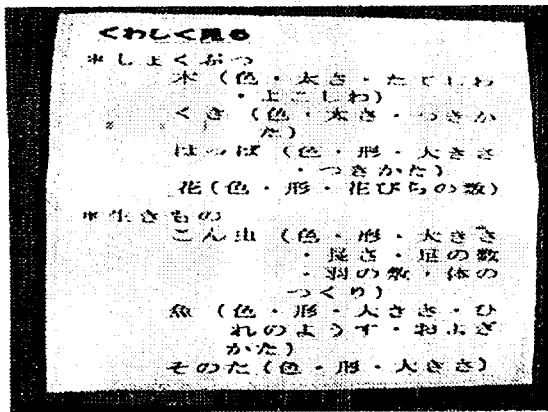 くわしく見る
*しょくぶつ
木(色・太さ・たてじわ
・よこじわ)
くき(色・太さ・つきか
た)
はっぱ(色・形・大きさ
・つきかた)
花(色・形・花びらの数)
*生きもの
こん虫(色・形・大きさ
・長さ・足の数
・羽の数・体の
つくり)
魚(色・形・大きさ・ひ
れのようす・およぎ
かた)
そのた(色・形・大きさ)